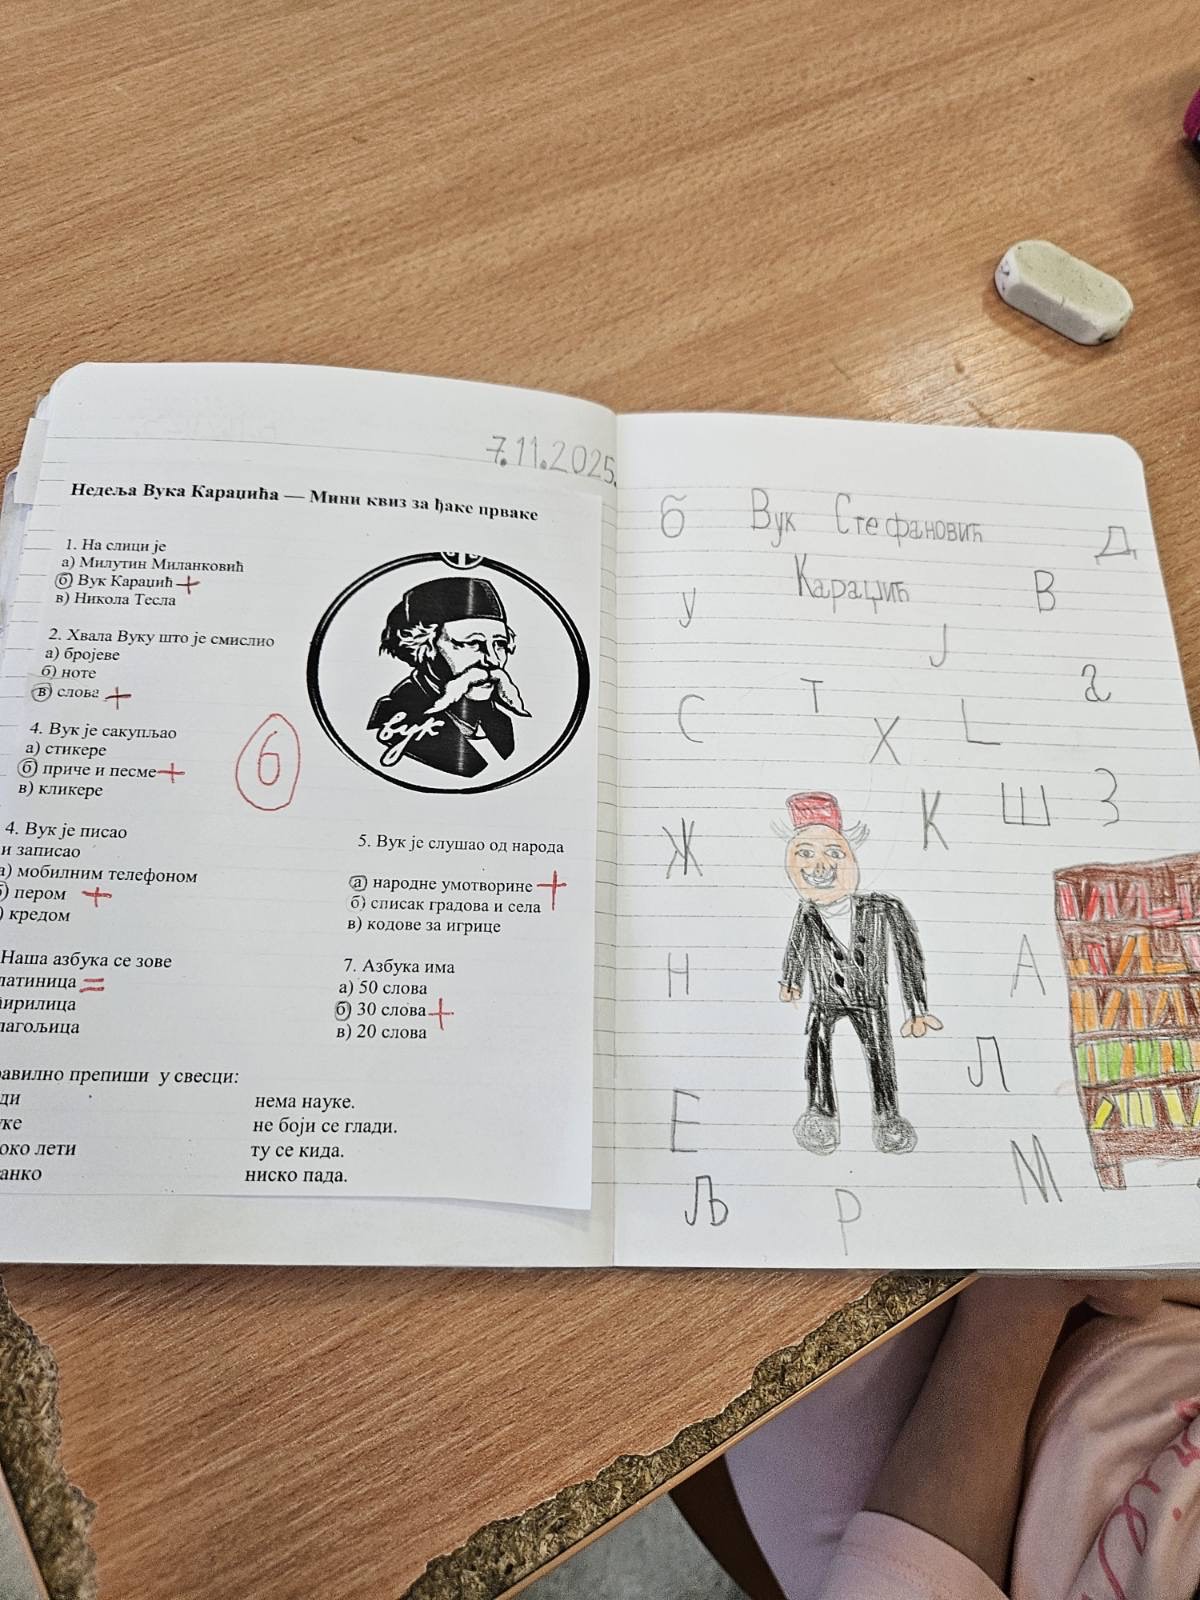 7.11.2025.
Недеља Вука Караџића — Мини квиз за ђаке прваке
1. На слици је
а) Милутин Миланковић
б) Вук Караџић +
в) Никола Тесла
2. Хвала Вуку што је смислио
а) бројеве
б) ноте
в) слова +
4. Вук је сакупљао
а) стикере
б) приче и песме +
в) кликере
4. Вук је писао
и записао
а) мобилним телефоном
б) пером +
) кредом
Наша азбука се зове
латиница =
ћирилица
лагољица
вук
6
5. Вук је слушао од народа
а) народне умотворине +
б) списак градова и села
в) кодове за игрице
7. Азбука има
а) 50 слова
б) 30 слова +
в) 20 слова
препиши у свесци:
нема науке.
не боји се глади.
лети ту се кида.
ниско пада.
б Вук Стефановић Д
Караџић В
У Ј
С Т Х L
К Ш З
Ж
Н А
Л
Е М
Љ Р